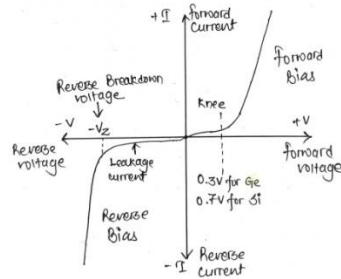 +I forward
current
forward
Bias
Reverse Breakdown
voltage
Knee
-V
-Vz
+V
Reverse
voltage
Leakage
current
forward
voltage
0.3V for Ge
0.7V for Si
Reverse
Bias
-I Reverse
current